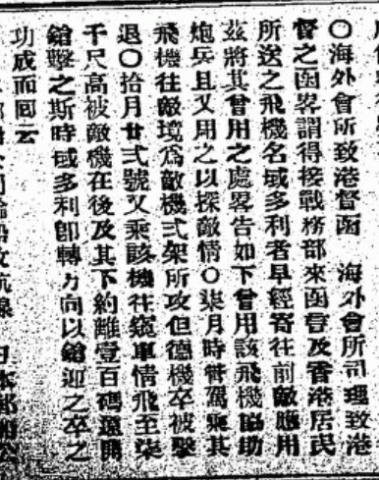 〇海外會所致港督函　海外會所司理致港
督之函畧謂得接戰務部來函言及香港居民
所送之飛機名域多利者早經寄往前敵應用
茲將其曾用之處畧告如下曾用該飛機協助
炮兵且又用之以探敵情〇柒月時乘其
飛機往敵境爲敵機弍架所攻但德機卒被擊
退〇拾月廿弍號又乘該機往窺軍情飛至柒
千尺高被敵機在後及其下約離壹百碼遠開
鎗擊之斯時域多利卽轉方向以鎗迎之卒之
功成而囘云